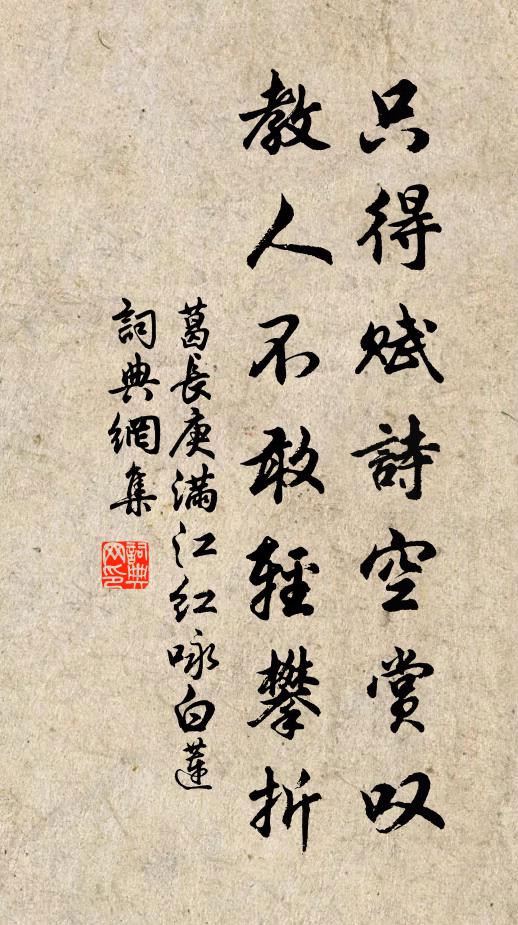 只得赋詩空賞叹
教人不敢輕攀折
葛長庚满江红咏白蓮
詞典網集
詞典网印